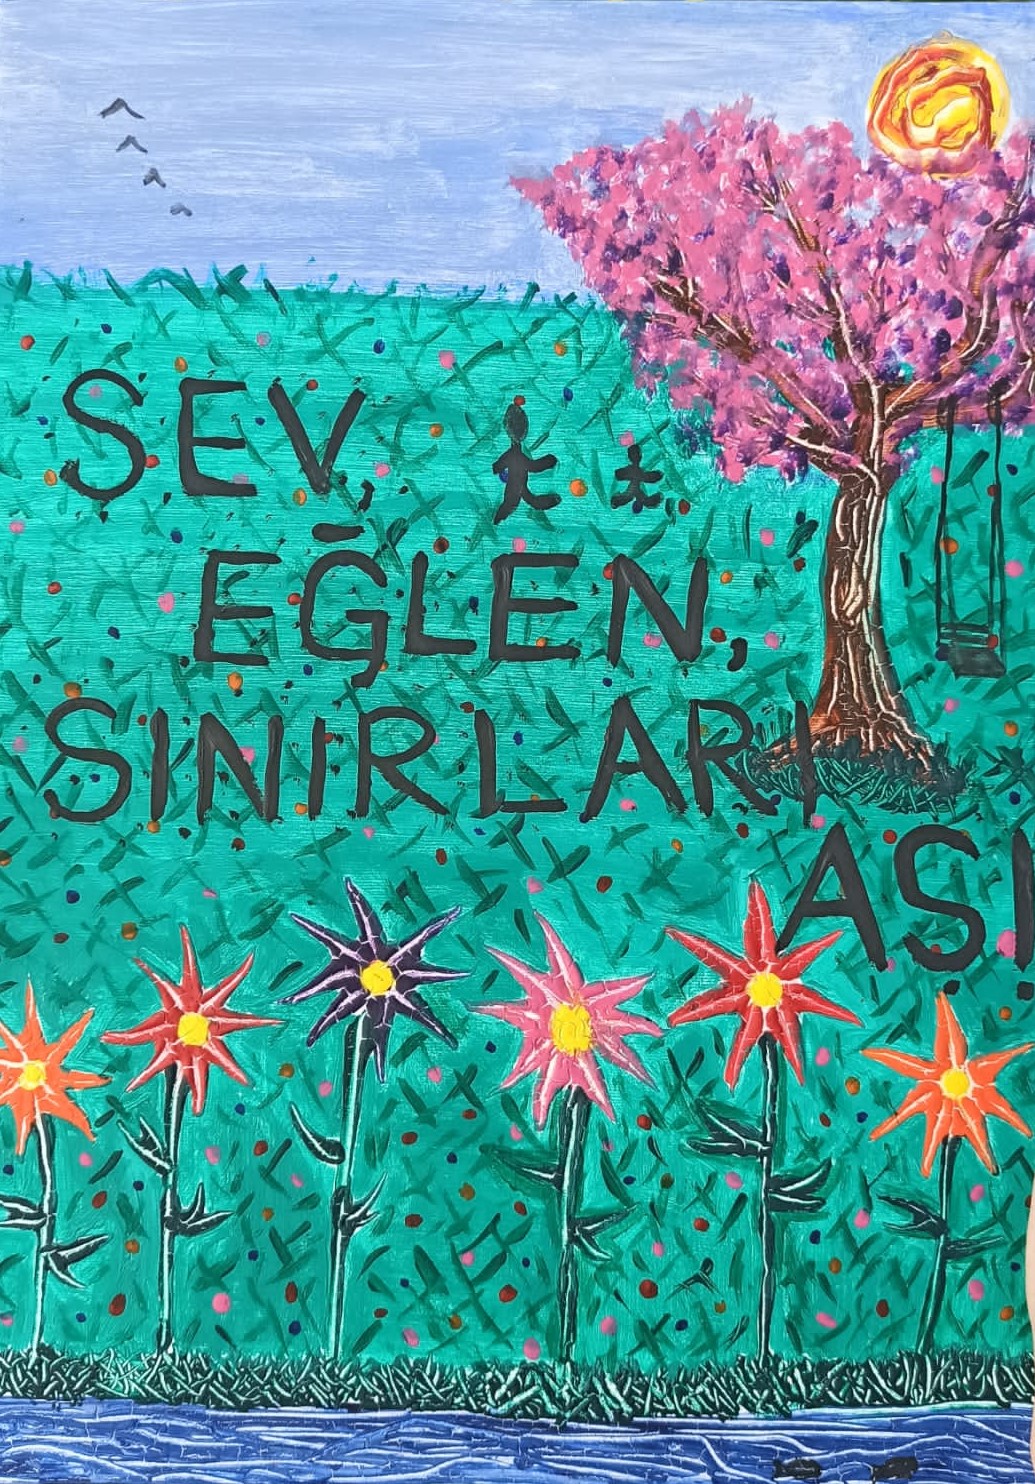 SEV,
EĞLEN,
SINIRLARI
AŞ!